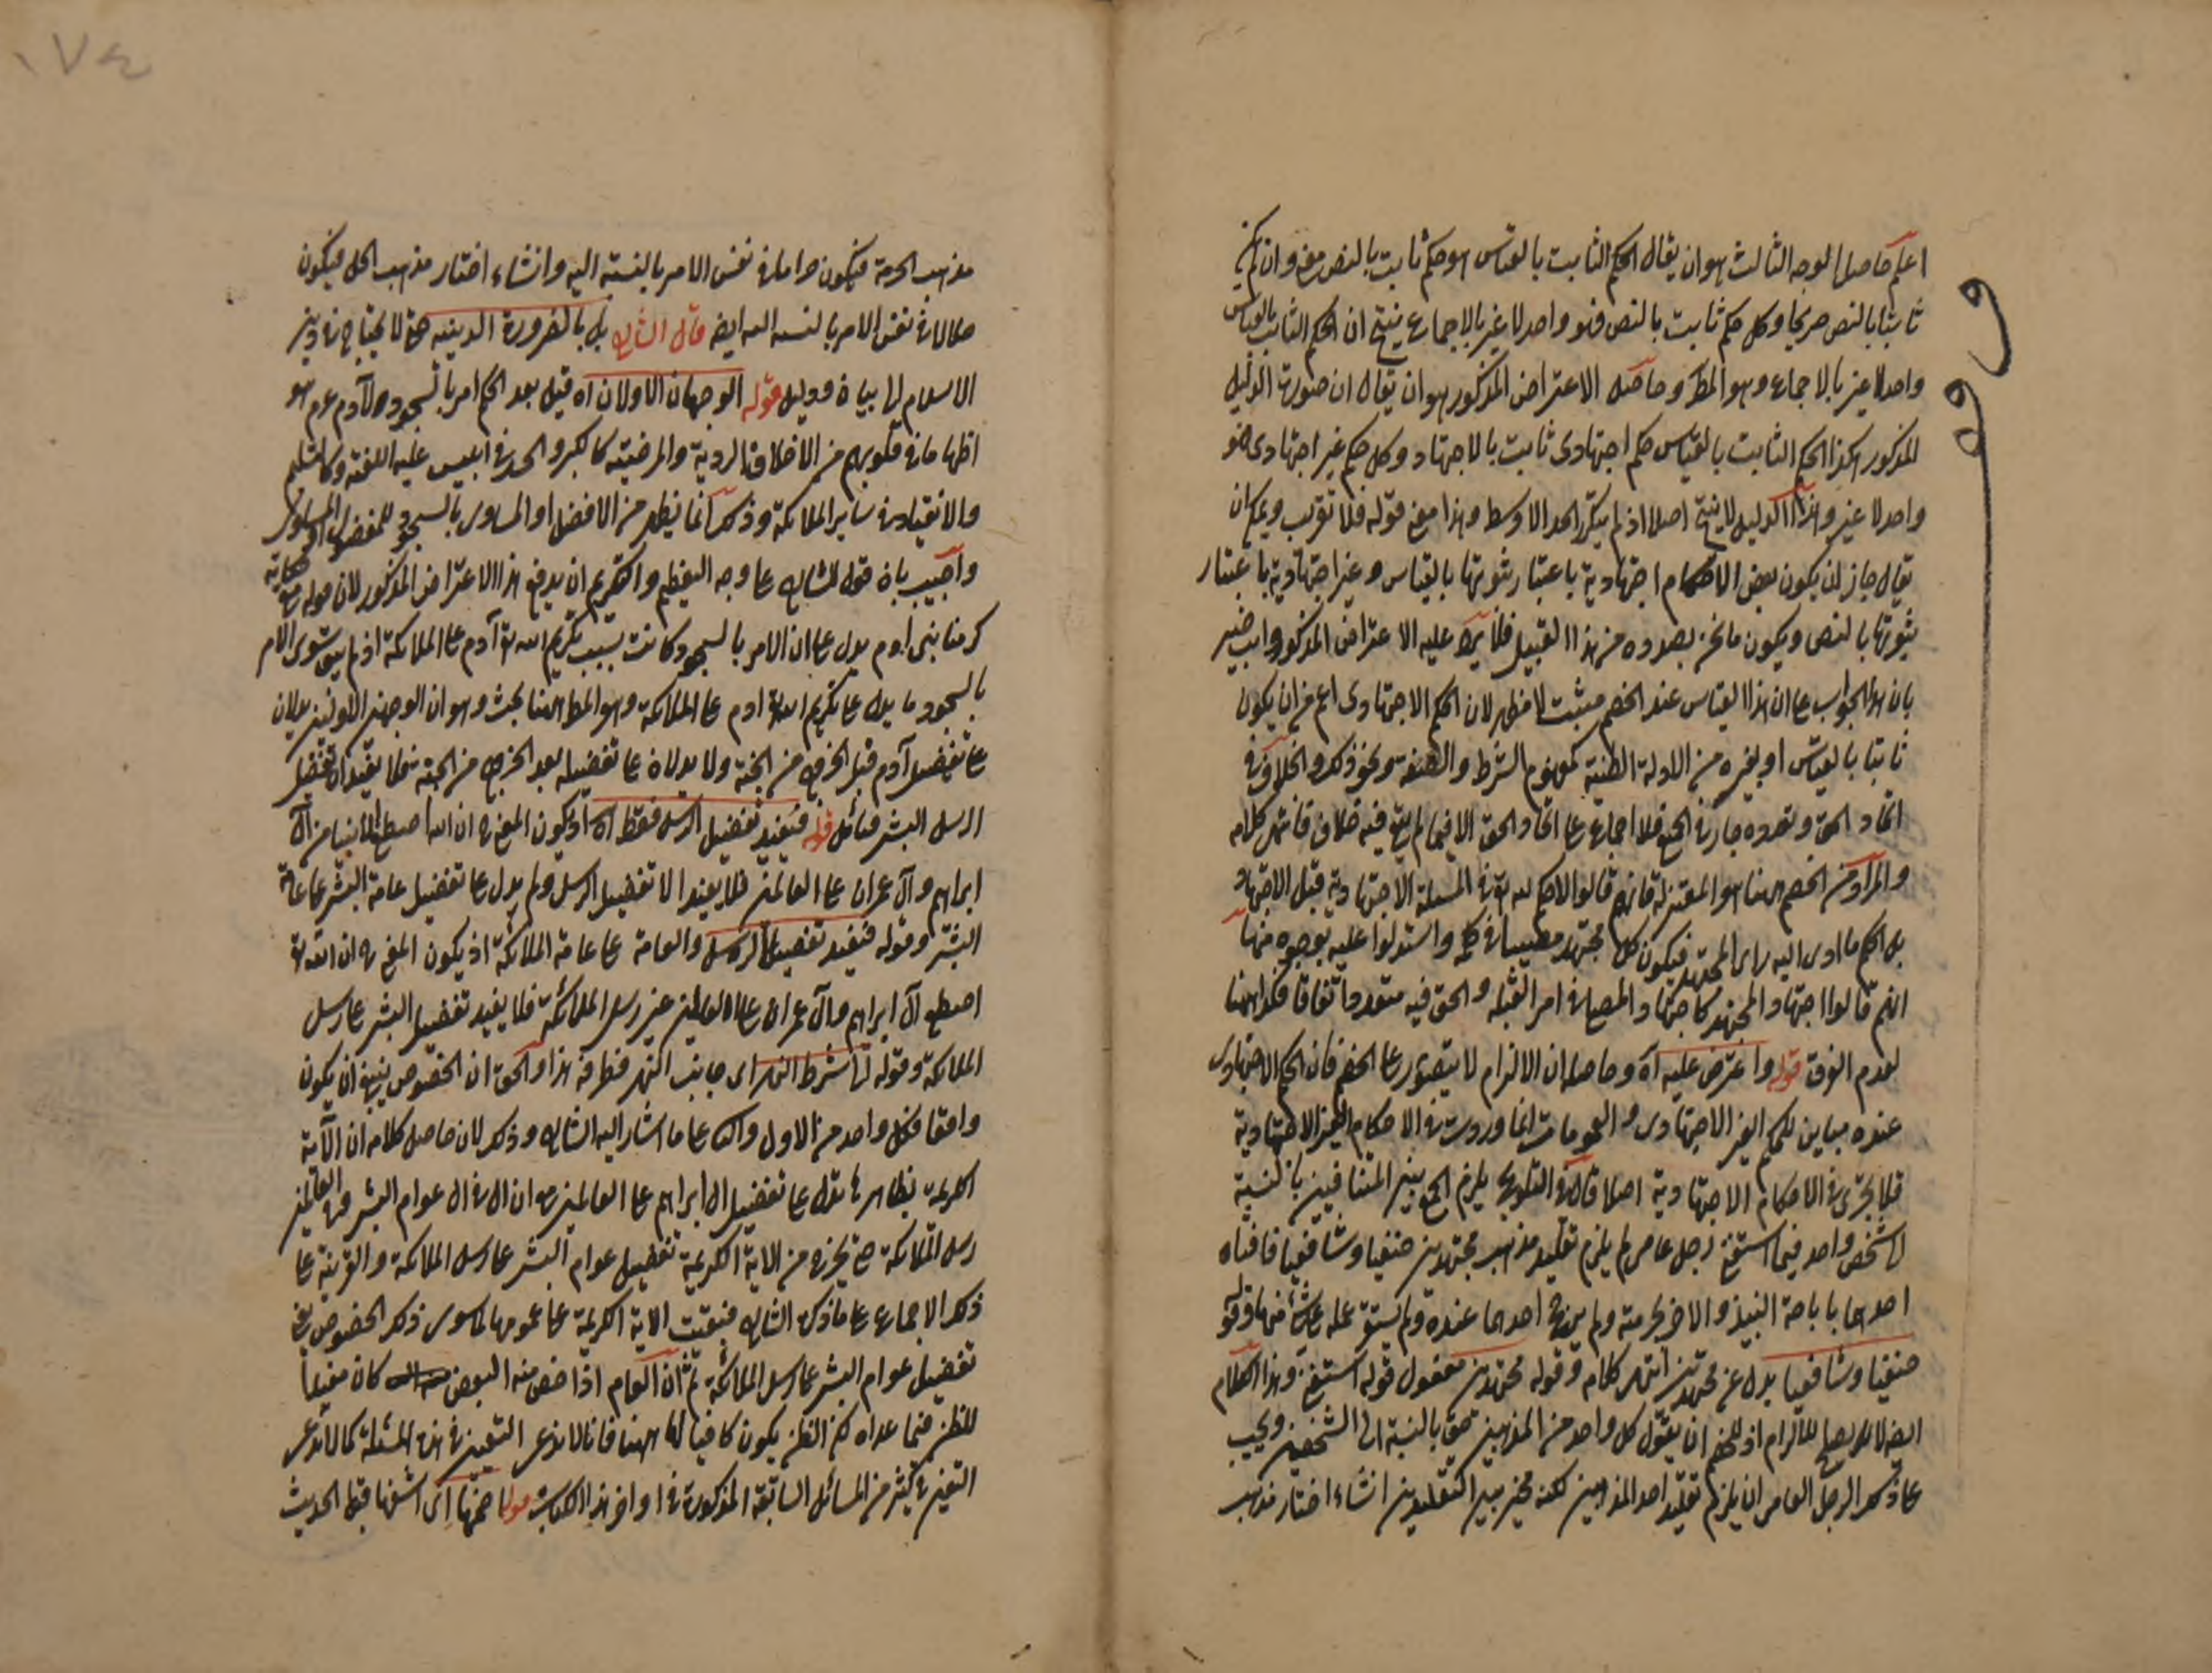 اعلم حاصل الوجه الثالث هو ان يقال الحكم الثابت بالقياس هو حكم ثابت بالنص معنى وان لم يكن
ثابتا بالنص صريحا وكل حكم ثابت بالنص فهو واحد لا غير بالاجماع ينتج ان الحكم الثابت بالقياس
واحد لا غير بالاجماع وهو المط وحاصل الاعتراض المذكور هو ان يقال ان صورة الدليل
المذكور هكذا الحكم الثابت بالقياس حكم اجتهادى ثابت بالاجتهاد وكل حكم غير اجتهادى فهو
واحد لا غير وهذا الدليل لا ينتج اصلا اذ لم يتكرر الحد الاوسط وهذا معنى قوله فلا تقريب ويمكن ان
يقال جاز ان يكون بعض الاحكام اجتهادية باعتبار ثبوتها بالقياس وغير اجتهادية باعتبار
ثبوتها بالنص ويكون ما نحن بصدده من هذا القبيل فلا يرد عليه الاعتراض المذكور وانت خبير
بان هذا الجواب على ان هذا القياس عند الخصم مثبت لا مظهر لان الحكم الاجتهادى اعم من ان يكون
ثابتا بالقياس او بغيره من الادلة الظنية كمفهوم الشرط والصفة ونحو ذلك والخلاف فى
اتحاد الحق وتعدده جار فى الجميع فلا اجماع على اتحاد الحق الا فيما لم يقع فيه خلاف فانتهى كلامه
والمراد من الخصم ههنا هو المعتزلة فانهم قالوا لا حكم لله تعالى فى المسئلة الاجتهادية قبل الاجتهاد
بل الحكم ما ادى اليه راى المجتهد فيكون كل مجتهد مصيبا فى حكمه واستدلوا عليه بوجوه منها
انهم قالوا اجتهاد المجتهد كاجتهاد المصلى فى امر القبلة والحق فيه متعدد اتفاقا فكذا ههنا
لعدم الفرق قوله واعترض عليه اه وحاصله ان الالزام لا يتصور على الخصم فان الحكم الاجتهادى
عنده مباين للحكم الغير الاجتهادى والعمومات انما وردت فى الاحكام الغير الاجتهادية
فلا يجرى فى الاحكام الاجتهادية اصلا قال فى التلويح يلزم الجمع بين المتنافيين بالنسبة
الى شخص واحد فيما استفتى رجل عامى لم يلزم تقليد مذهب مجتهدين حنفيا وشافعيا فافتاه
احدهما باباحة النبيذ والاخر بحرمته ولم يترجح احدهما عنده ولم يستقر عمله على شئ منهما وقوله
حنفيا وشافعيا بدل عن مجتهدين انتهى كلامه وقوله مجتهدين مفعول قوله استفتى وهذا الكلام
ايضا لا يصلح للالزام اذ للخصم ان يقول كل واحد من المذهبين حق بالنسبة الى الشخصين ويجب
على ذلك الرجل العامى ان يلزم تقليد احد المذهبين لكنه مخير بين التقليدين ان شاء اختار مذهب
وقف
١٧٤
مذهب الحرمة فيكون حراما فى نفس الامر بالنسبة اليه وان شاء اختار مذهب الحل فيكون
حلالا فى نفس الامر بالنسبة اليه ايضا قال الشارح بل بالضرورة الدينية حتى لا يحتاج فى دين
الاسلام الى بيان ودليل قوله الوجهان الاولان اه قيل بعد الحكم امر بالسجود لآدم عم هو
اظهار ما فى قلوبهم من الاخلاق الردية والمرضية كالكبر والحسد فى ابليس عليه اللعنة وكالتسليم
والانقياد فى ساير الملائكة وذلك انما يظهر من الافضل او المساوى بالسجود للمفضول او المساوى
واجيب بان قول الشارح على وجه التعظيم والتكريم ان يدفع هذا الاعتراض المذكور لان قوله تعالى حكاية
كرمنا بنى ادم يدل على ان الامر بالسجود كانت بسبب تكريم الله تعالى آدم على الملائكة اذ لم يبق سوى الامر
بالسجود ما يدل على تكريم الله تعالى ادم على الملائكة وهو المط ههنا بحث وهو ان الوجهين الاولين يدلان
على تفضيل آدم قبل الخروج من الجنة ولا يدلان على تفضيله بعد الخروج من الجنة فلا يفيدان تفضيل
الرسل البشر فتأمل قوله فيفيد تفضيل الرسل فقط اه اذ يكون المعنى ح ان الله اصطفى الانبياء من آل
ابراهيم وآل عمران على العالمين فلا يفيد الا تفضيل الرسل ولم يدل على تفضيل عامة البشر على عامة
البشر وقوله فيفيد تفضيل الرسل والعامة على عامة الملائكة اذ يكون المعنى ح ان الله تعالى
اصطفى آل ابراهيم وآل عمران على العالمين غير رسل الملائكة فلا يفيد تفضيل البشر على رسل
الملائكة وقوله لنا شرط النهر اى جانب النهر فطرفه هذا والحق ان الخصوص ينبغى ان يكون
واقعا فكل واحد من الاول والثانى على ما اشار اليه الشارح وذلك لان حاصل كلامه ان الآية
الكريمة بظاهرها تدل على تفضيل ال ابراهيم على العالمين مع ان ال فى ال عوام البشر وفى العالمين
رسل الملائكة حتى يخرج من الاية الكريمة تفضيل عوام البشر على رسل الملائكة والقرينة على
ذلك الاجماع على ما ذكره الشارح فبقيت الاية الكريمة على عمومها لما سوى ذلك الخصوص يعنى
تفضيل عوام البشر على رسل الملائكة ثم ان العام اذا خص منه البعض كان مفيدا
للظن فيما عداه لكن الظن يكون كافيا لنا ههنا فانا لا ندعى اليقين فى هذه المسئلة كما لا ندعى
اليقين فى كثير من المسائل السابقة المذكورة فى اواخر هذا الكتاب قوله احمزها اى اشقها قبل الحديث